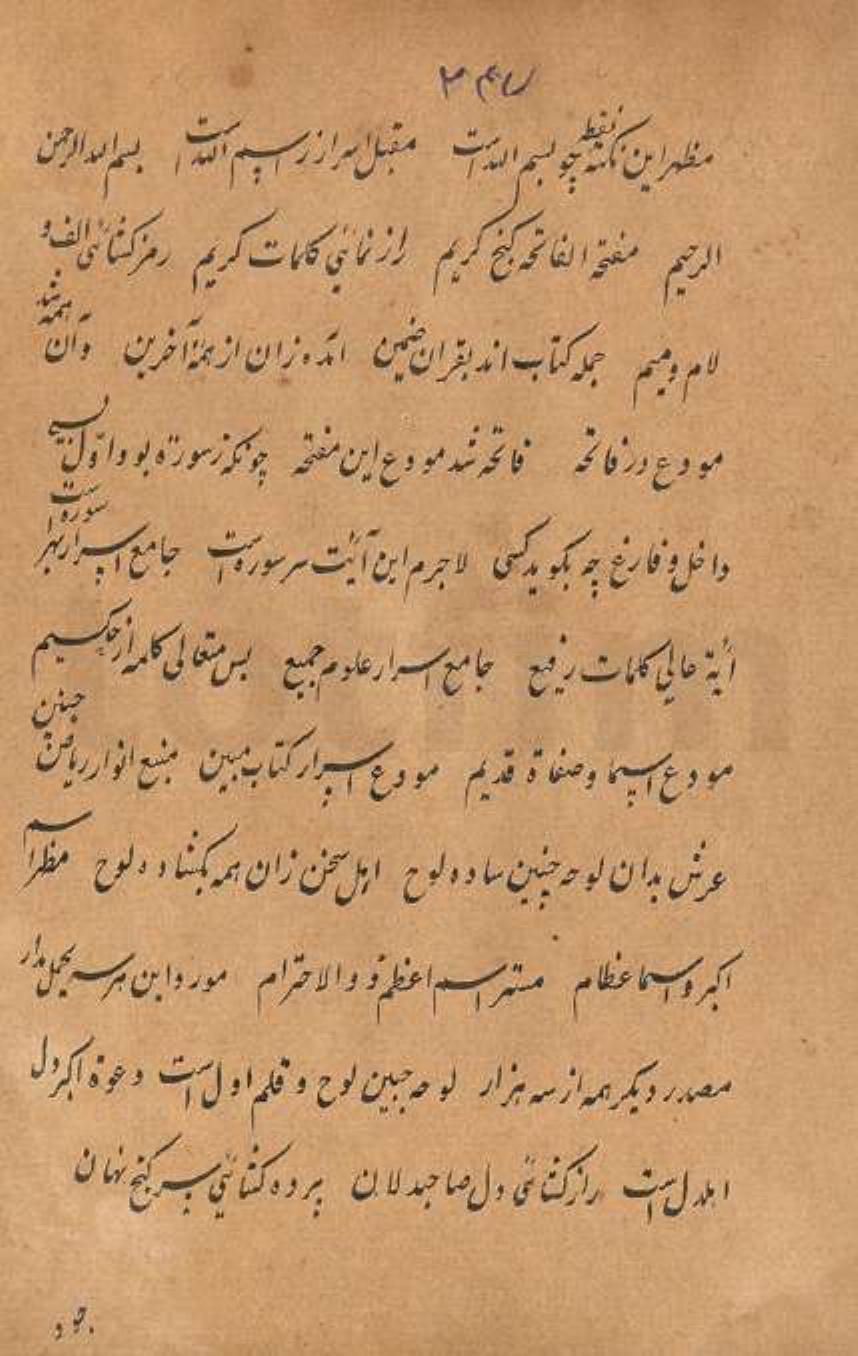 مظهر این نکته چو بسم الله است مقبل اسرار ز رسم الله است بسم الله الرحمن
الرحیم مفتحة الفاتحه کنج کریم راز نمائی کلمات کریم رمز کشائی الف و
لام و میم جمله کتاب اند بقران ضمین آمده زان از همه آخرین وآن همه شد
مودع در فاتحه فاتحه شد مودع این مفتحه چونکه ز سورة بود اوّل بسی
داخل و فارغ چه بکوید کسی لا جرم این آیت سر سوره است جامع اسرار بهر سوره است
آیة عالی کلمات رفیع جامع اسرار علوم جمیع بس متعالی کلمه از حکیم
مودع اسما و صفاة قدیم مودع اسرار کتاب مبین منبع انوار ریاض جنین
عرش بدان لوحه چنین ساده لوح اهل سخن زان همه بکشاده لوح مظهر اسم
اکبر و اسما عظام اسم اعظم ذو والاحترام مورد این هر سه بحمل مدار
مصدر دیکر همه از سه هزار لوحه جبین لوح و قلم اول است دعوة اکبر دل
اهلدل است راز کشائی دل صاحبدلان پرده کشائی سر کنج نهان